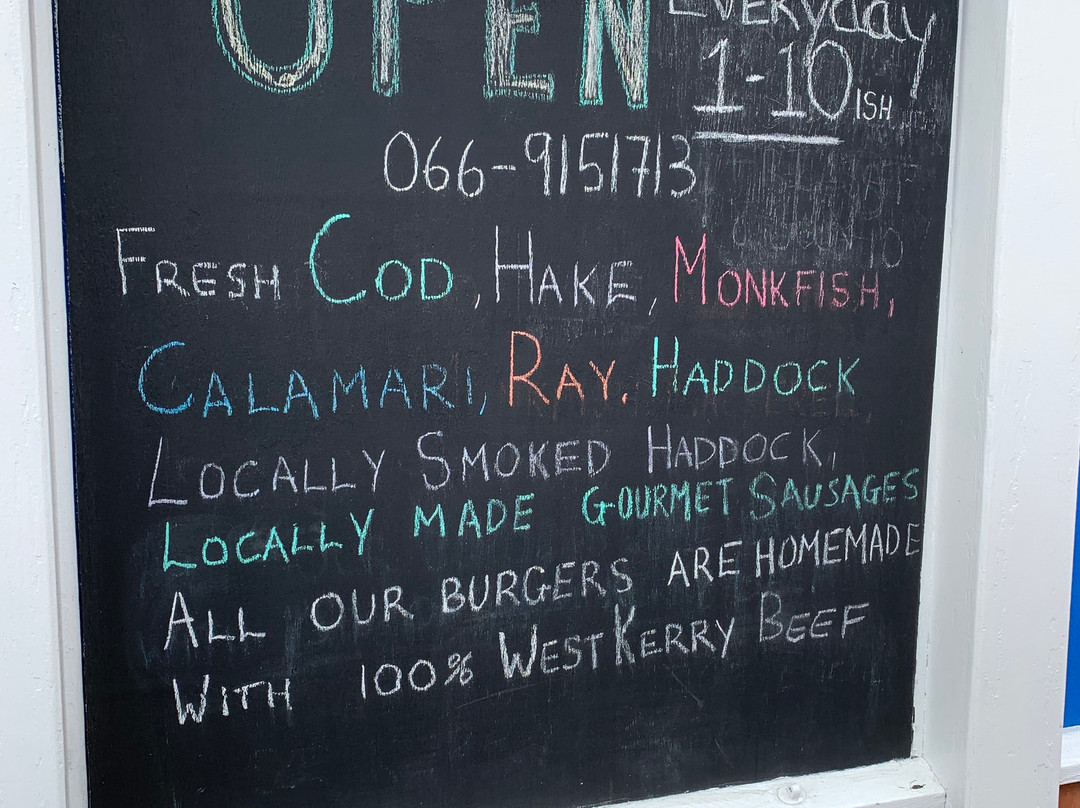 OPEN EVERYDAY
1-10 ISH
066-9151713
FRESH COD, HAKE, MONKFISH,
CALAMARI, RAY. HADDOCK
LOCALLY SMOKED HADDOCK,
LOCALLY MADE GOURMET SAUSAGES
ALL OUR BURGERS ARE HOMEMADE
WITH 100% WEST KERRY BEEF